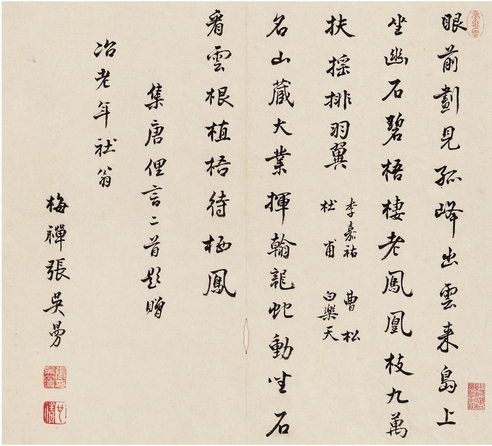 眼前劃見孤峰出雲来島上
坐幽石碧梧棲老鳳凰枝九萬
扶搖排羽翼
李嘉祐 曹松
杜甫 白樂天
名山藏大業揮翰龍蛇動坐石
看雲根植梧待栖鳳
集唐俚言二首題贈
冶老年社翁
梅禪張吳曼